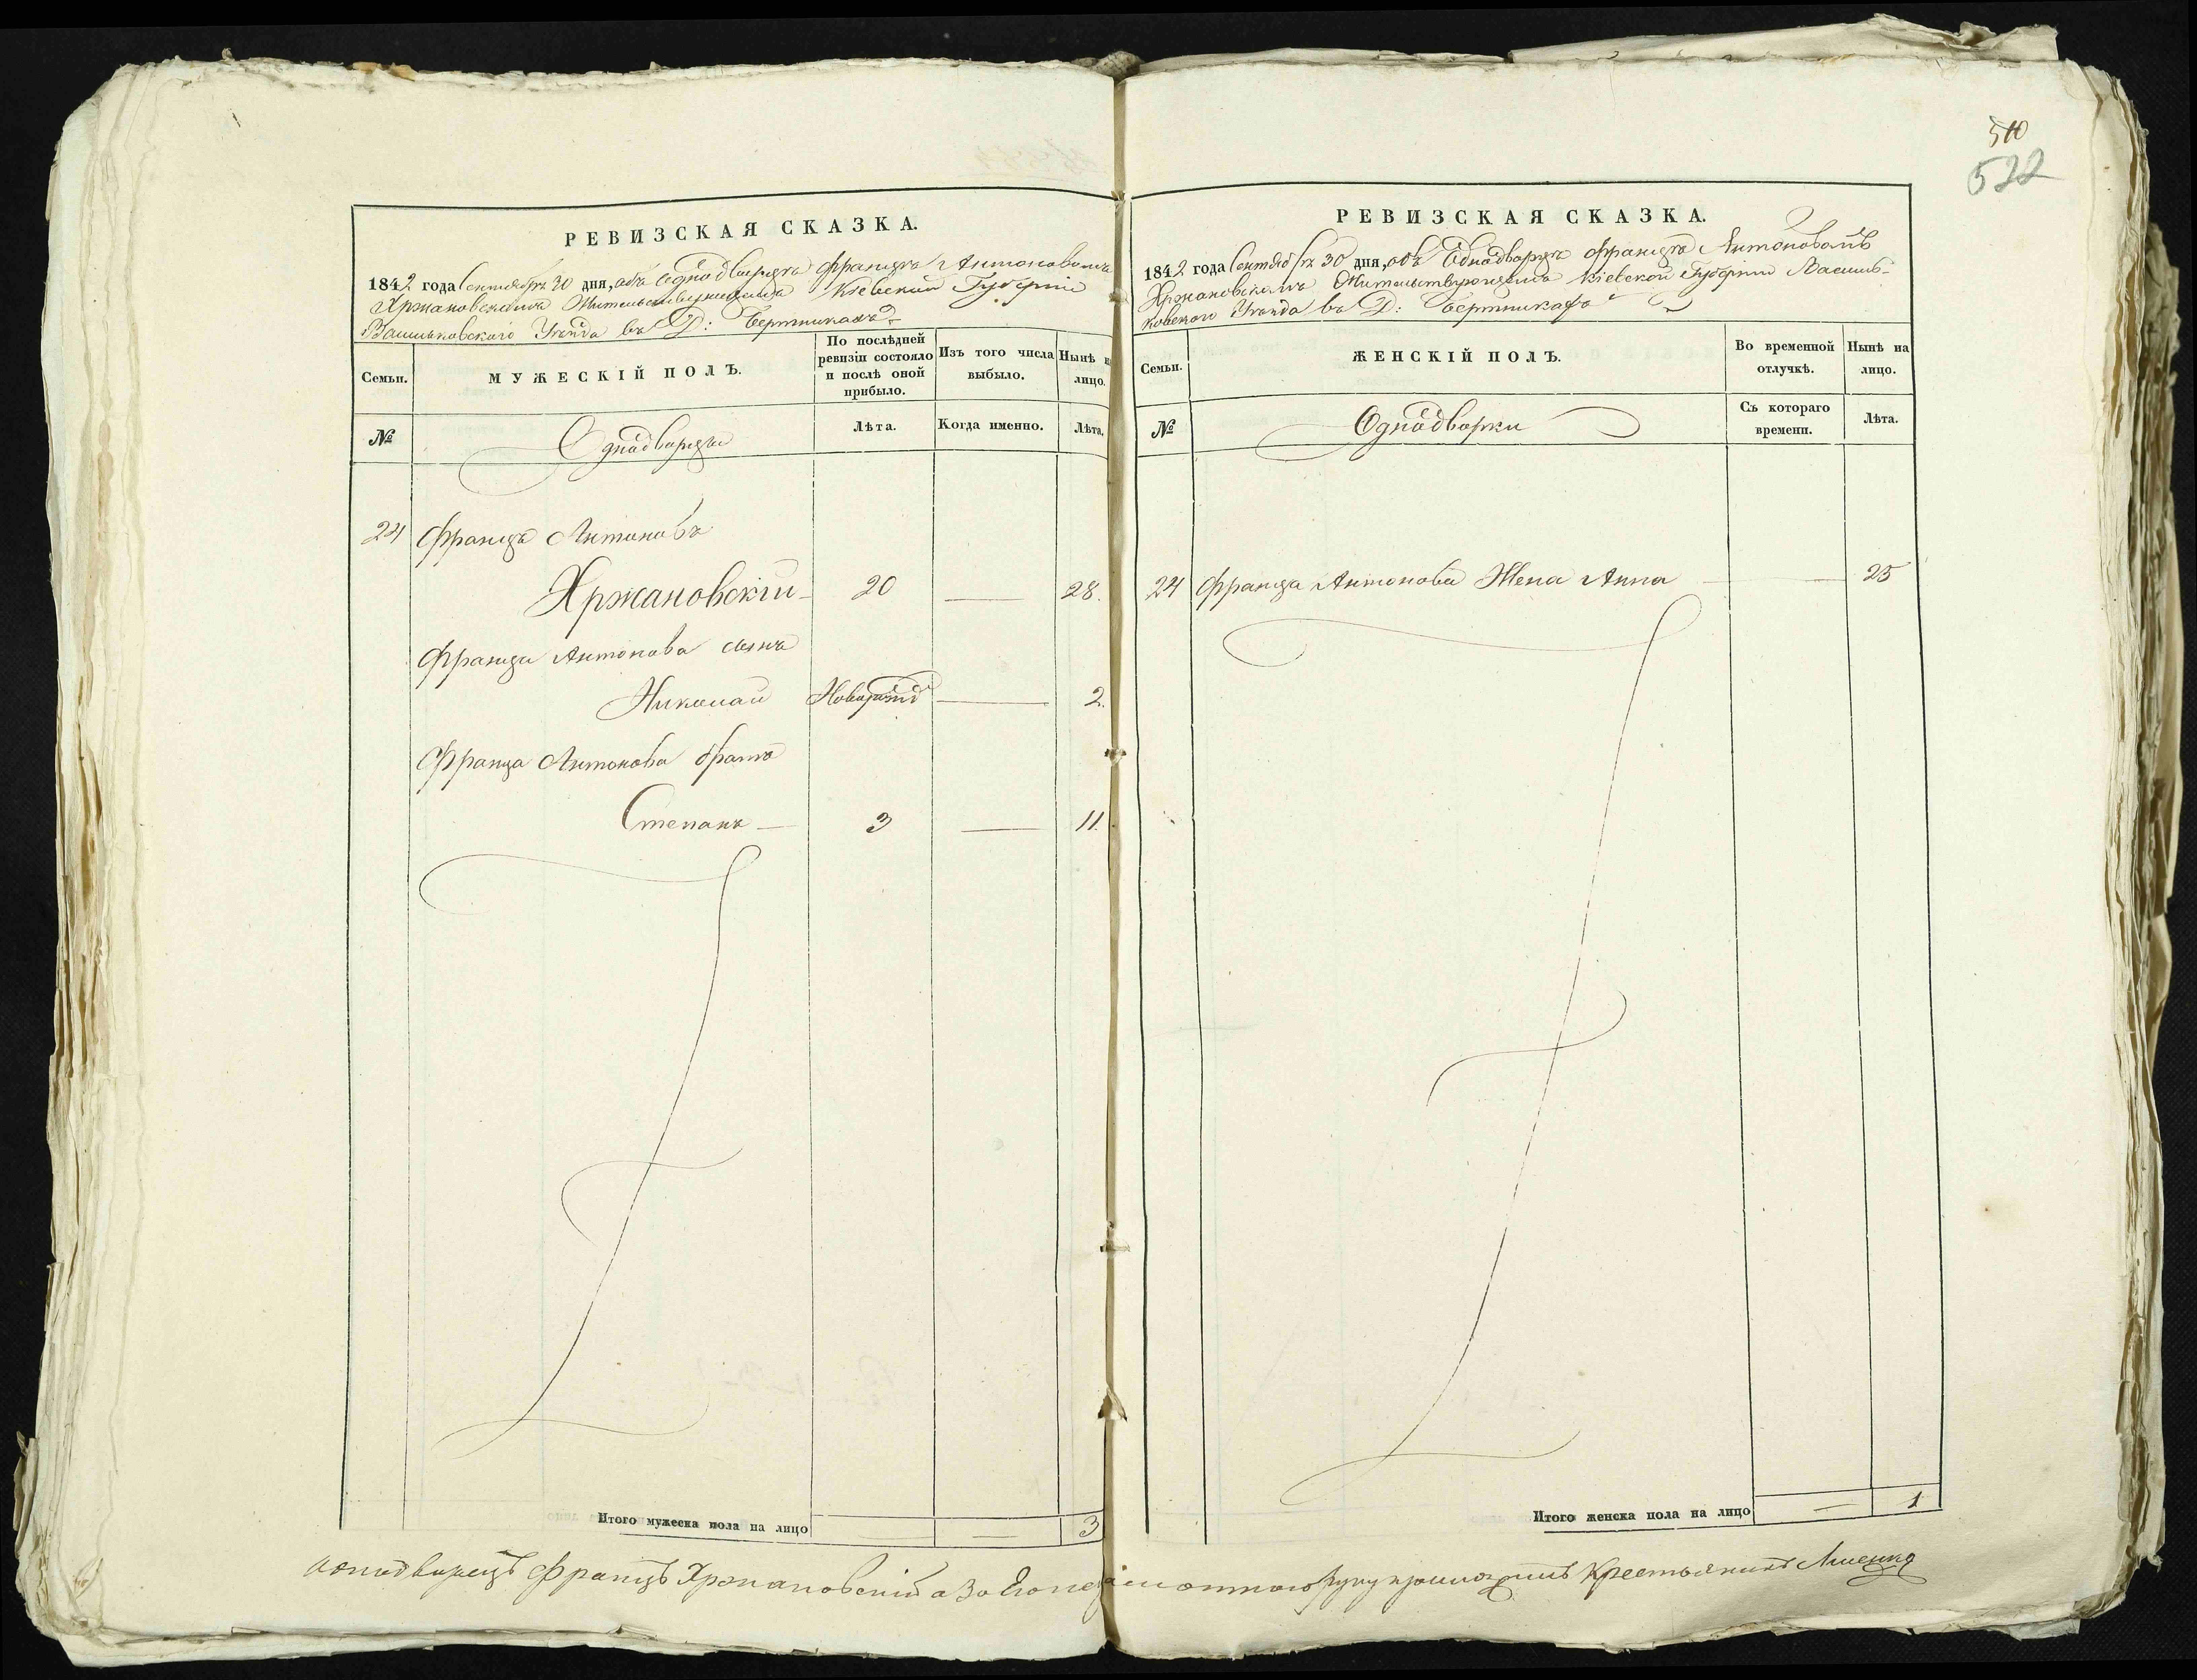 РЕВИЗСКАЯ СКАЗКА.
1842 года Сентября 30 дня, объ Однодворцѣ Францѣ Антоновомъ
Хржановскомъ Жительствующемъ Кіевской Губерніи
Васильковскаго Уѣзда въ Д: Бертникахъ
Семьи.
МУЖЕСКІЙ ПОЛЪ.
По послѣдней ревизіи состояло и послѣ оной прибыло.
Изъ того числа выбыло.
Нынѣ на лицо.
№
Однодворцы
Лѣта.
Когда именно.
Лѣта.
24 Францъ Антоновъ
Хржановскій 20 — 28.
Франца Антонова сынъ
Николай Новорожд — 2.
Франца Антонова братъ
Степанъ — 3 — 11.
Итого мужеска пола на лицо — 3
510
522
РЕВИЗСКАЯ СКАЗКА.
1842 года Сентября 30 дня, объ Однодворцѣ Францѣ Антоновомъ
Хржановскомъ Жительствующемъ Кіевской Губерніи Василь-
ковскаго Уѣзда въ Д: Бертникахъ
Семьи.
ЖЕНСКІЙ ПОЛЪ.
Во временной отлучкѣ.
Нынѣ на лицо.
№
Однодворки
Съ котораго времени.
Лѣта.
24 Франца Антонова Жена Анна — 25
Итого женска пола на лицо — 1
однодворецъ Францъ Хржановскій а За Его руку приложилъ Крестьянинъ